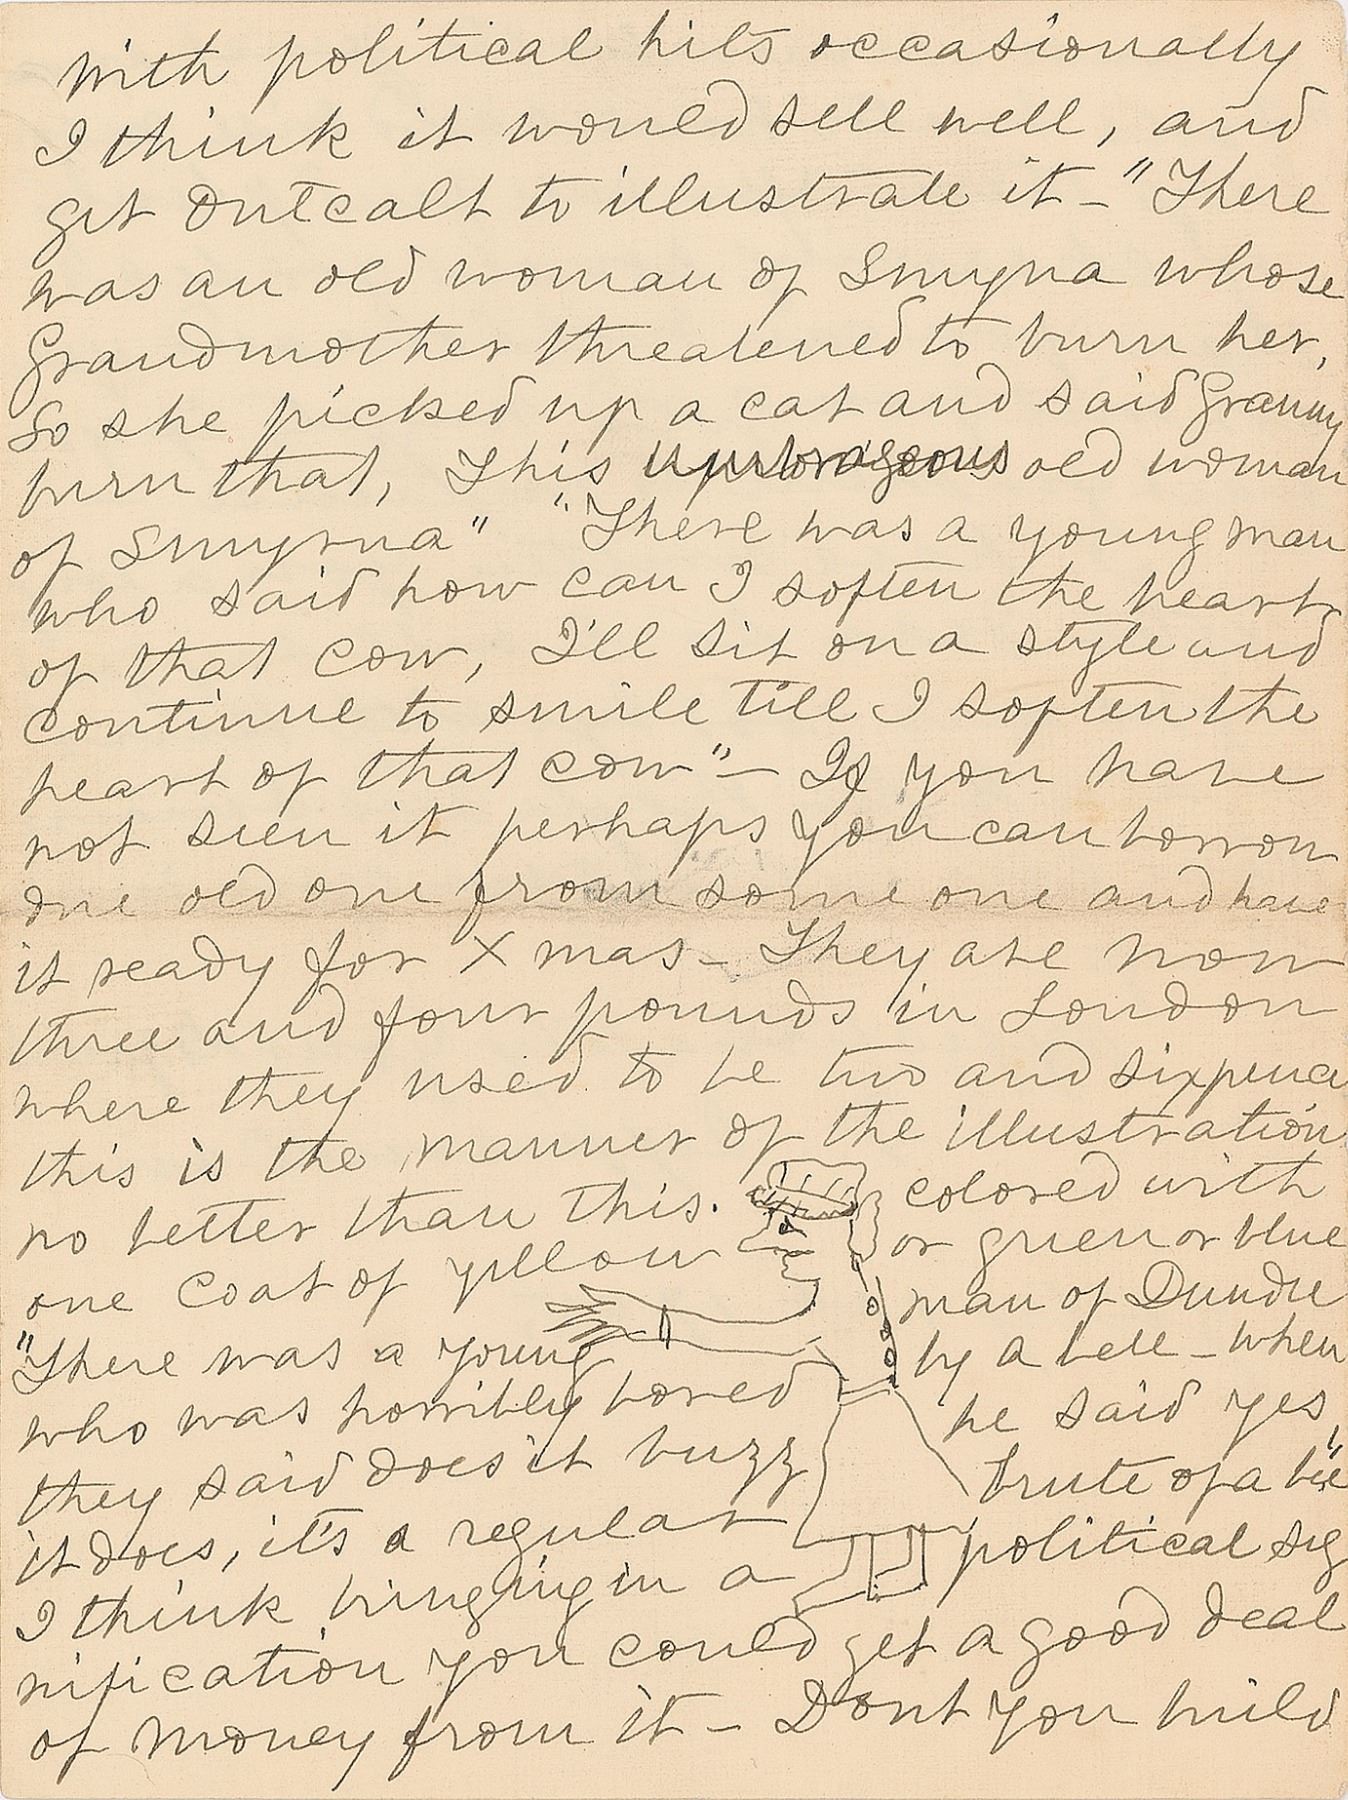 with political hits occasionally
I think it would sell well, and
get Outcalt to illustrate it - "There
was an old woman of Smyrna whose
Grandmother threatened to burn her,
So she picked up a cat and said Granny
burn that, This old woman
of Smyrna" "There was a young man
who said how can I soften the heart
of that cow, I'll sit on a style and
continue to smile till I soften the
heart of that cow" - If you have
not seen it perhaps you can borrow
one old one from some one and have
it ready for Xmas - They are now
three and four pounds in London
where they used to be two and sixpence
this is the manner of the illustration
no better than this. colored with
one coat of yellow or green or blue
"There was a young man of Dundee
who was horribly bored by a bee - when
they said does it buzz he said yes,
it does, it's a regular brute of a bee"
I think bringing in a political sig
nification you could get a good deal
of money from it - Dont you build